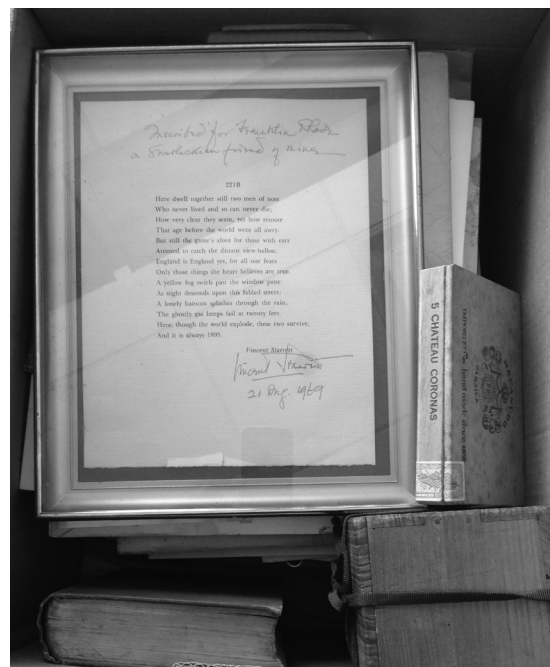 Inscribed for Franklin Rhode
a Sherlockian friend of mine
221B
Here dwell together still two men of note
Who never lived and so can never die;
How very clear they seem, yet how remote
That age before the world went all awry.
But still the game's afoot for those with ears
Attuned to catch the distant view-halloo:
England is England yet, for all our fears
Only those things the heart believes are true.
A yellow fog swirls past the window pane
As night descends upon this fabled street;
A lonely hansom splashes through the rain,
The ghostly gas lamps fail at twenty feet.
Here, though the world explode, these two survive,
And it is always 1895.
Vincent Starrett
Vincent Starrett
21 Aug. 1969
5 CHATEAU CORONAS
hand made since